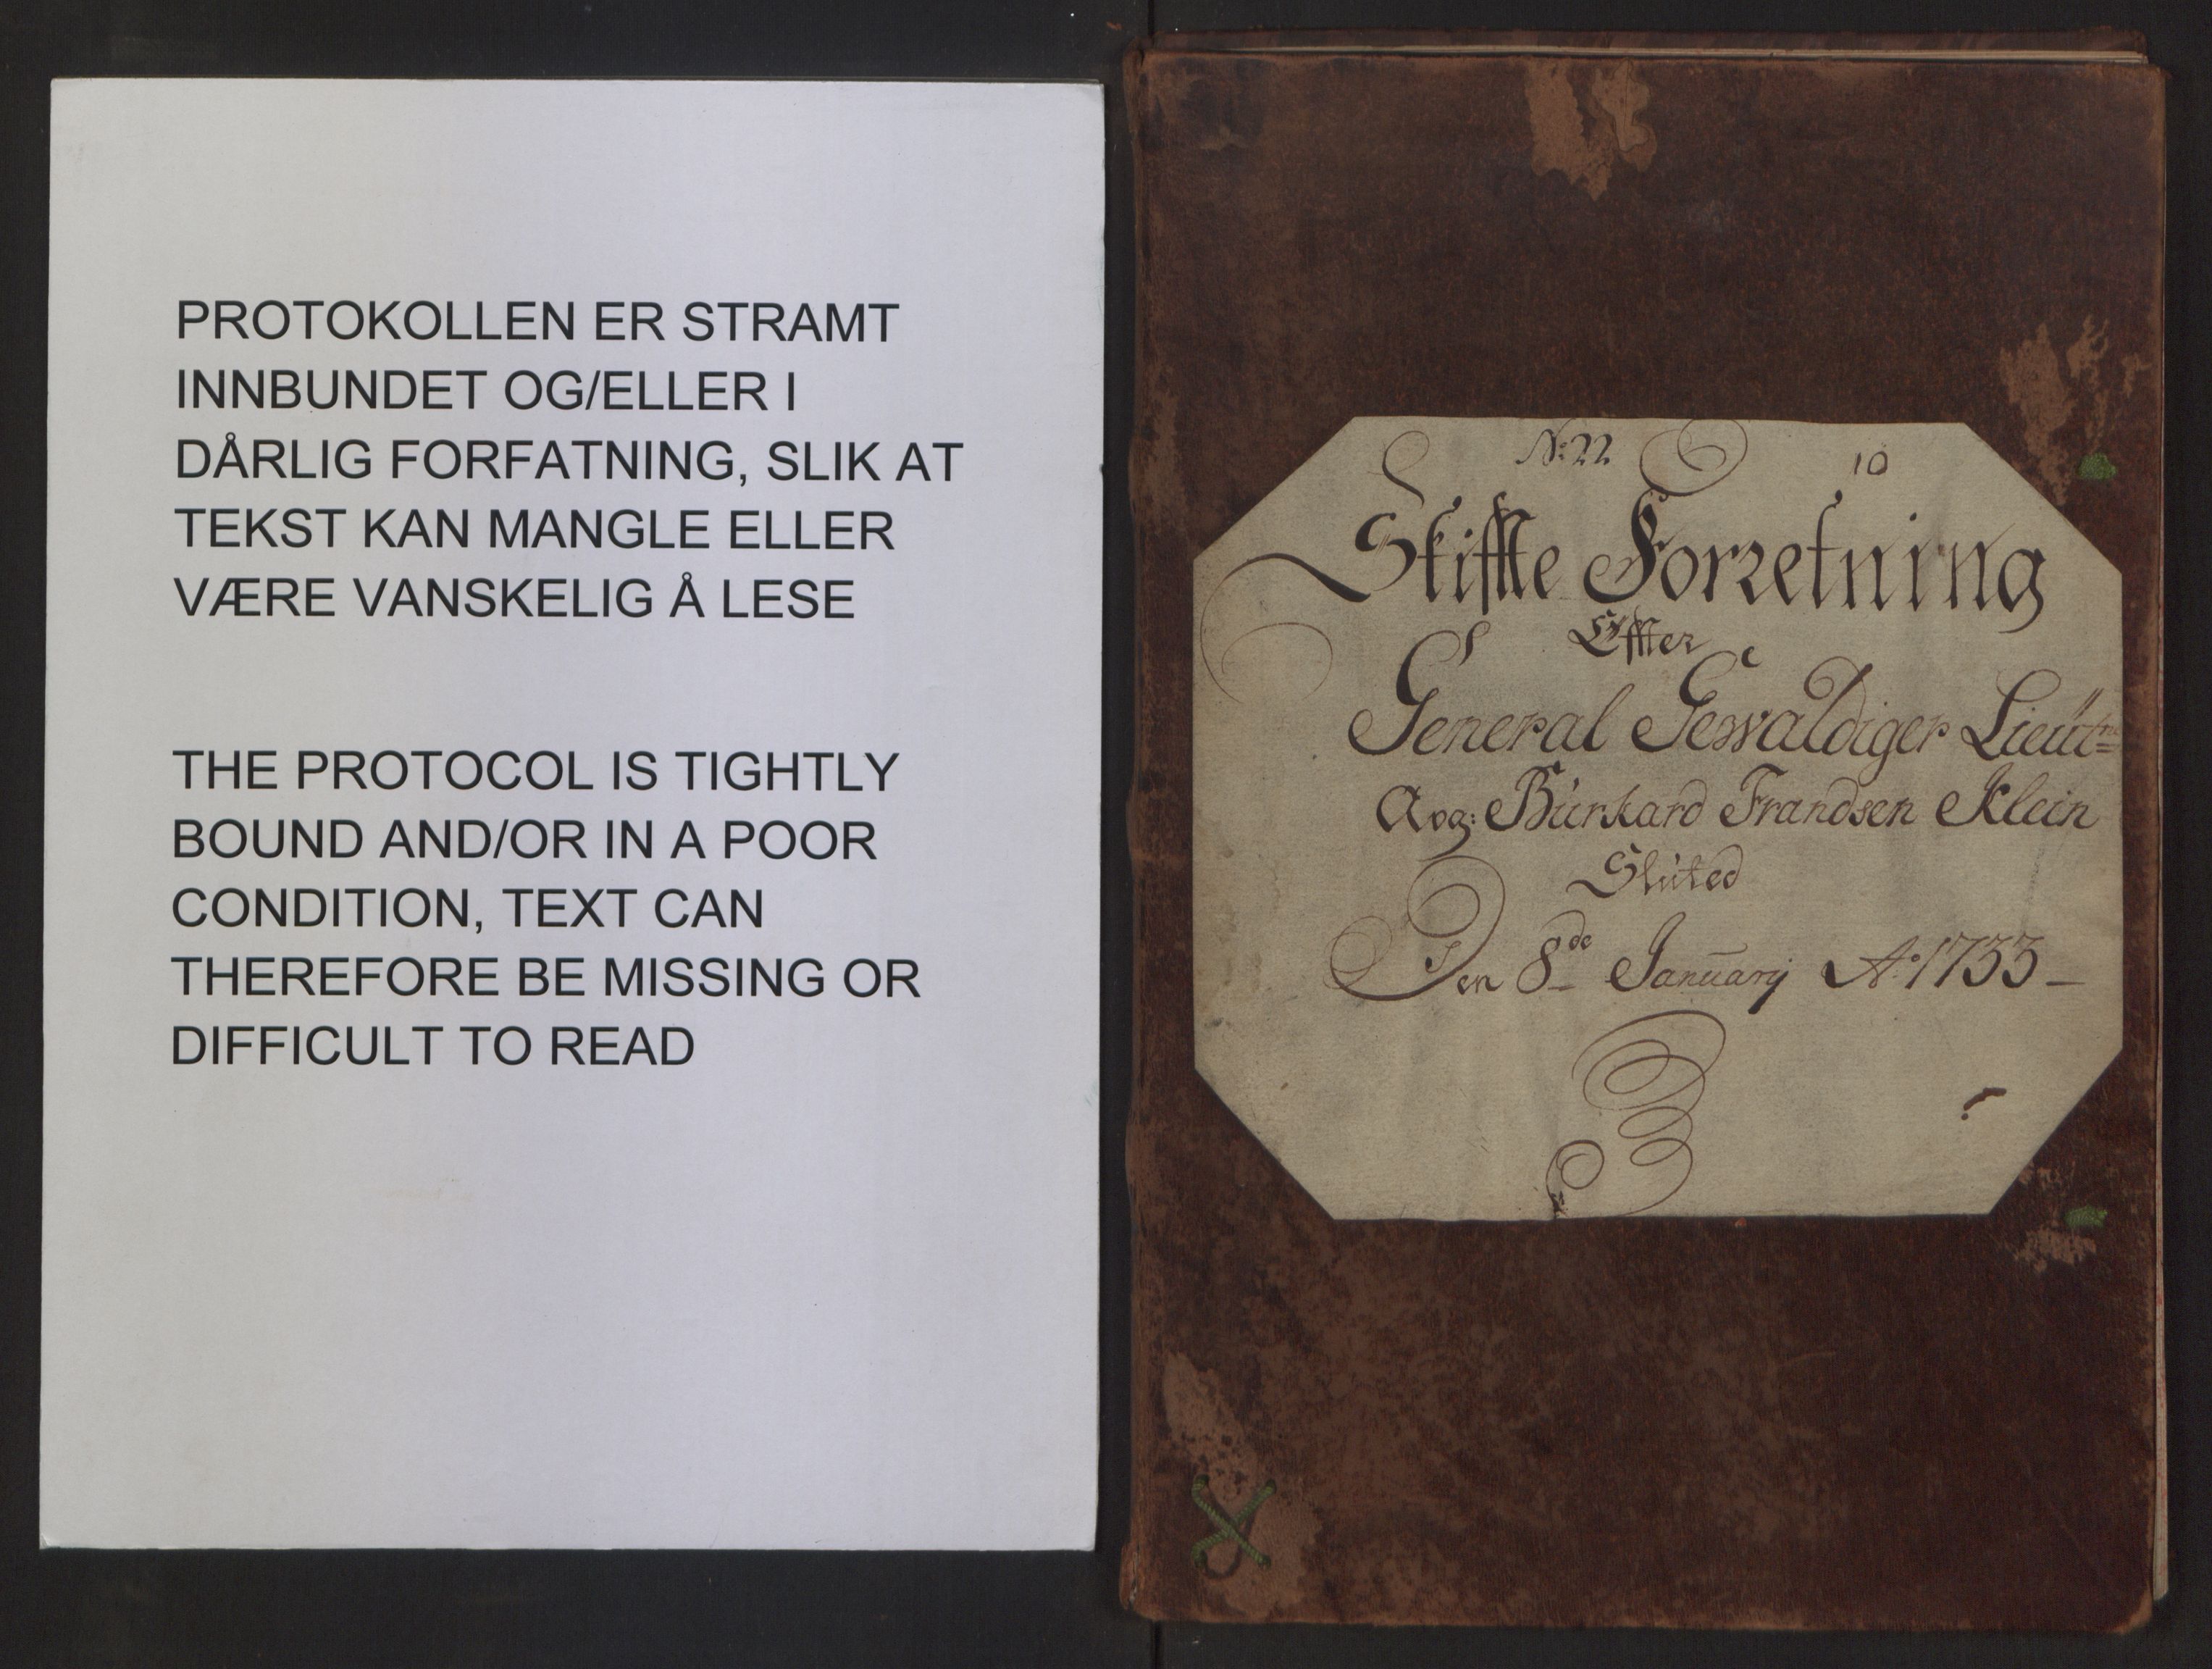 PROTOKOLLEN ER STRAMT
INNBUNDET OG/ELLER I
DÅRLIG FORFATNING, SLIK AT
TEKST KAN MANGLE ELLER
VÆRE VANSKELIG Å LESE
THE PROTOCOL IS TIGHTLY
BOUND AND/OR IN A POOR
CONDITION, TEXT CAN
THEREFORE BE MISSING OR
DIFFICULT TO READ
No: 22 10
Skiffte Forretning
Effter
General Gewaldiger Lieut
Aug: Burkard Frandsen Klein
Sluted
Den 8de January Ao: 1733